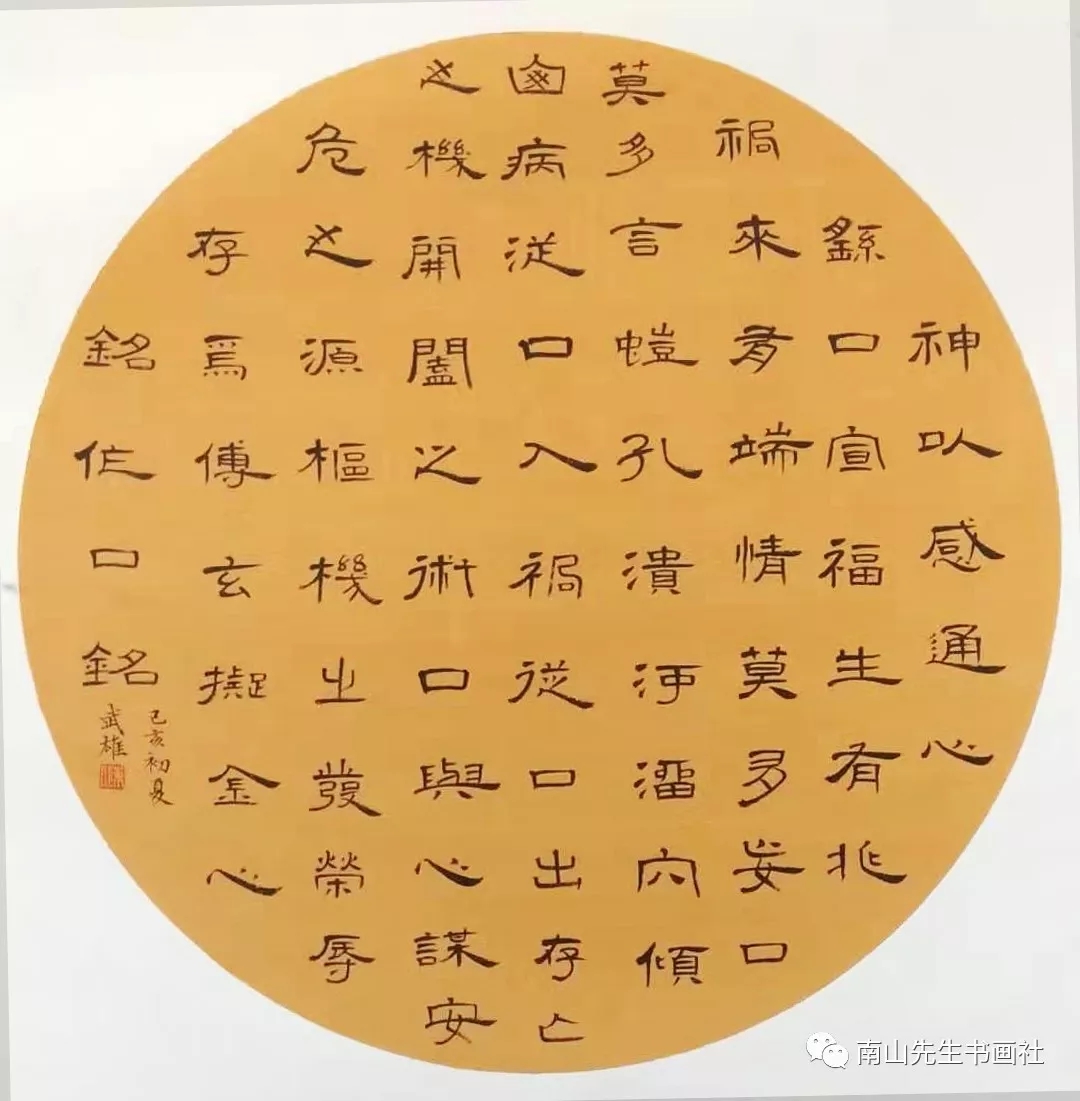 神以感通心
繇口宣福生有兆
禍來有端情莫多妄口
莫多言螘孔潰河溜穴傾
病從口入禍從口出存亡
之機開闔之術口與心謀安
危之源樞機之發榮辱
存焉傅玄擬金心
銘作口銘
己亥初夏
武雄
南山先生书画社